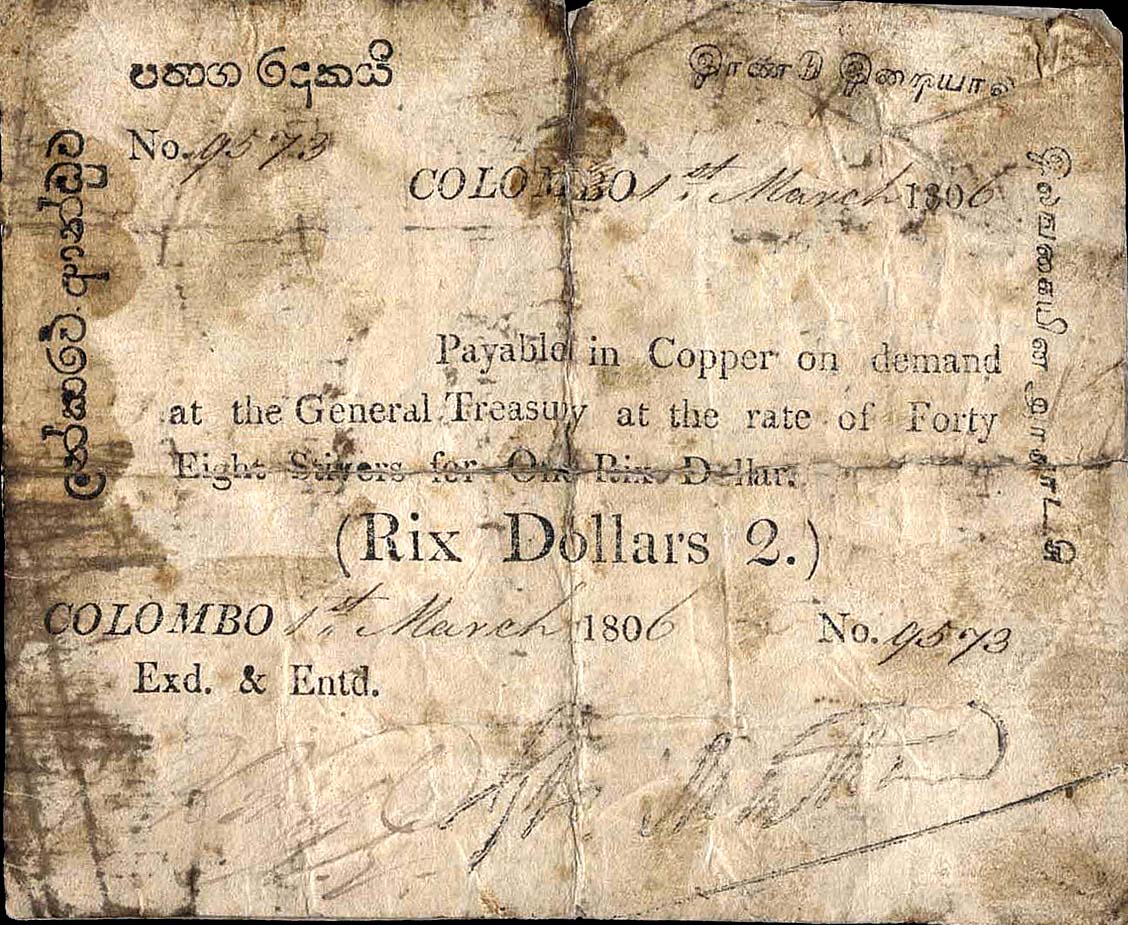 පතාග රදකයි
இரண்டு இறையால
ලන්කාවේ ආන්ඩුව
No. 9573
COLOMBO 1st. March 1806
Payable in Copper on demand
at the General Treasury at the rate of Forty
Eight Stivers for One Rix Dollar.
(Rix Dollars 2.)
COLOMBO 1st. March 1806 No. 9573
Exd. & Entd.